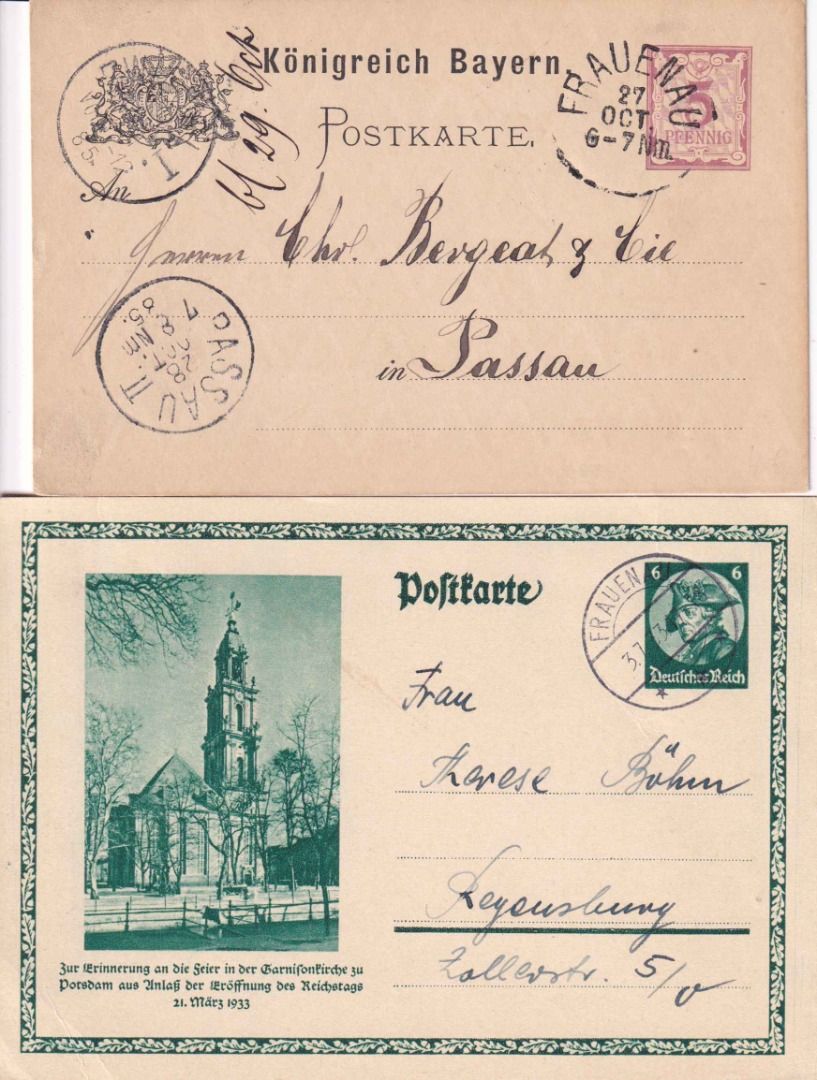 Königreich Bayern.
POSTKARTE.
FRAUENAU
27
OCT
6-7 Nm.
5
PFENNIG
29. Oct.
85.
I.
An
Herren Chr. Bergeat & Cie
in Passau
PASSAU II.
28 OCT.
NM
85.
Postkarte
6 6
Deutsches Reich
FRAUENAU
3.7.
Frau
Therese Böhm
Regensburg
Zollerstr. 5/0
Zur Erinnerung an die Feier in der Garnisonkirche zu
Potsdam aus Anlaß der Eröffnung des Reichstags
21. März 1933